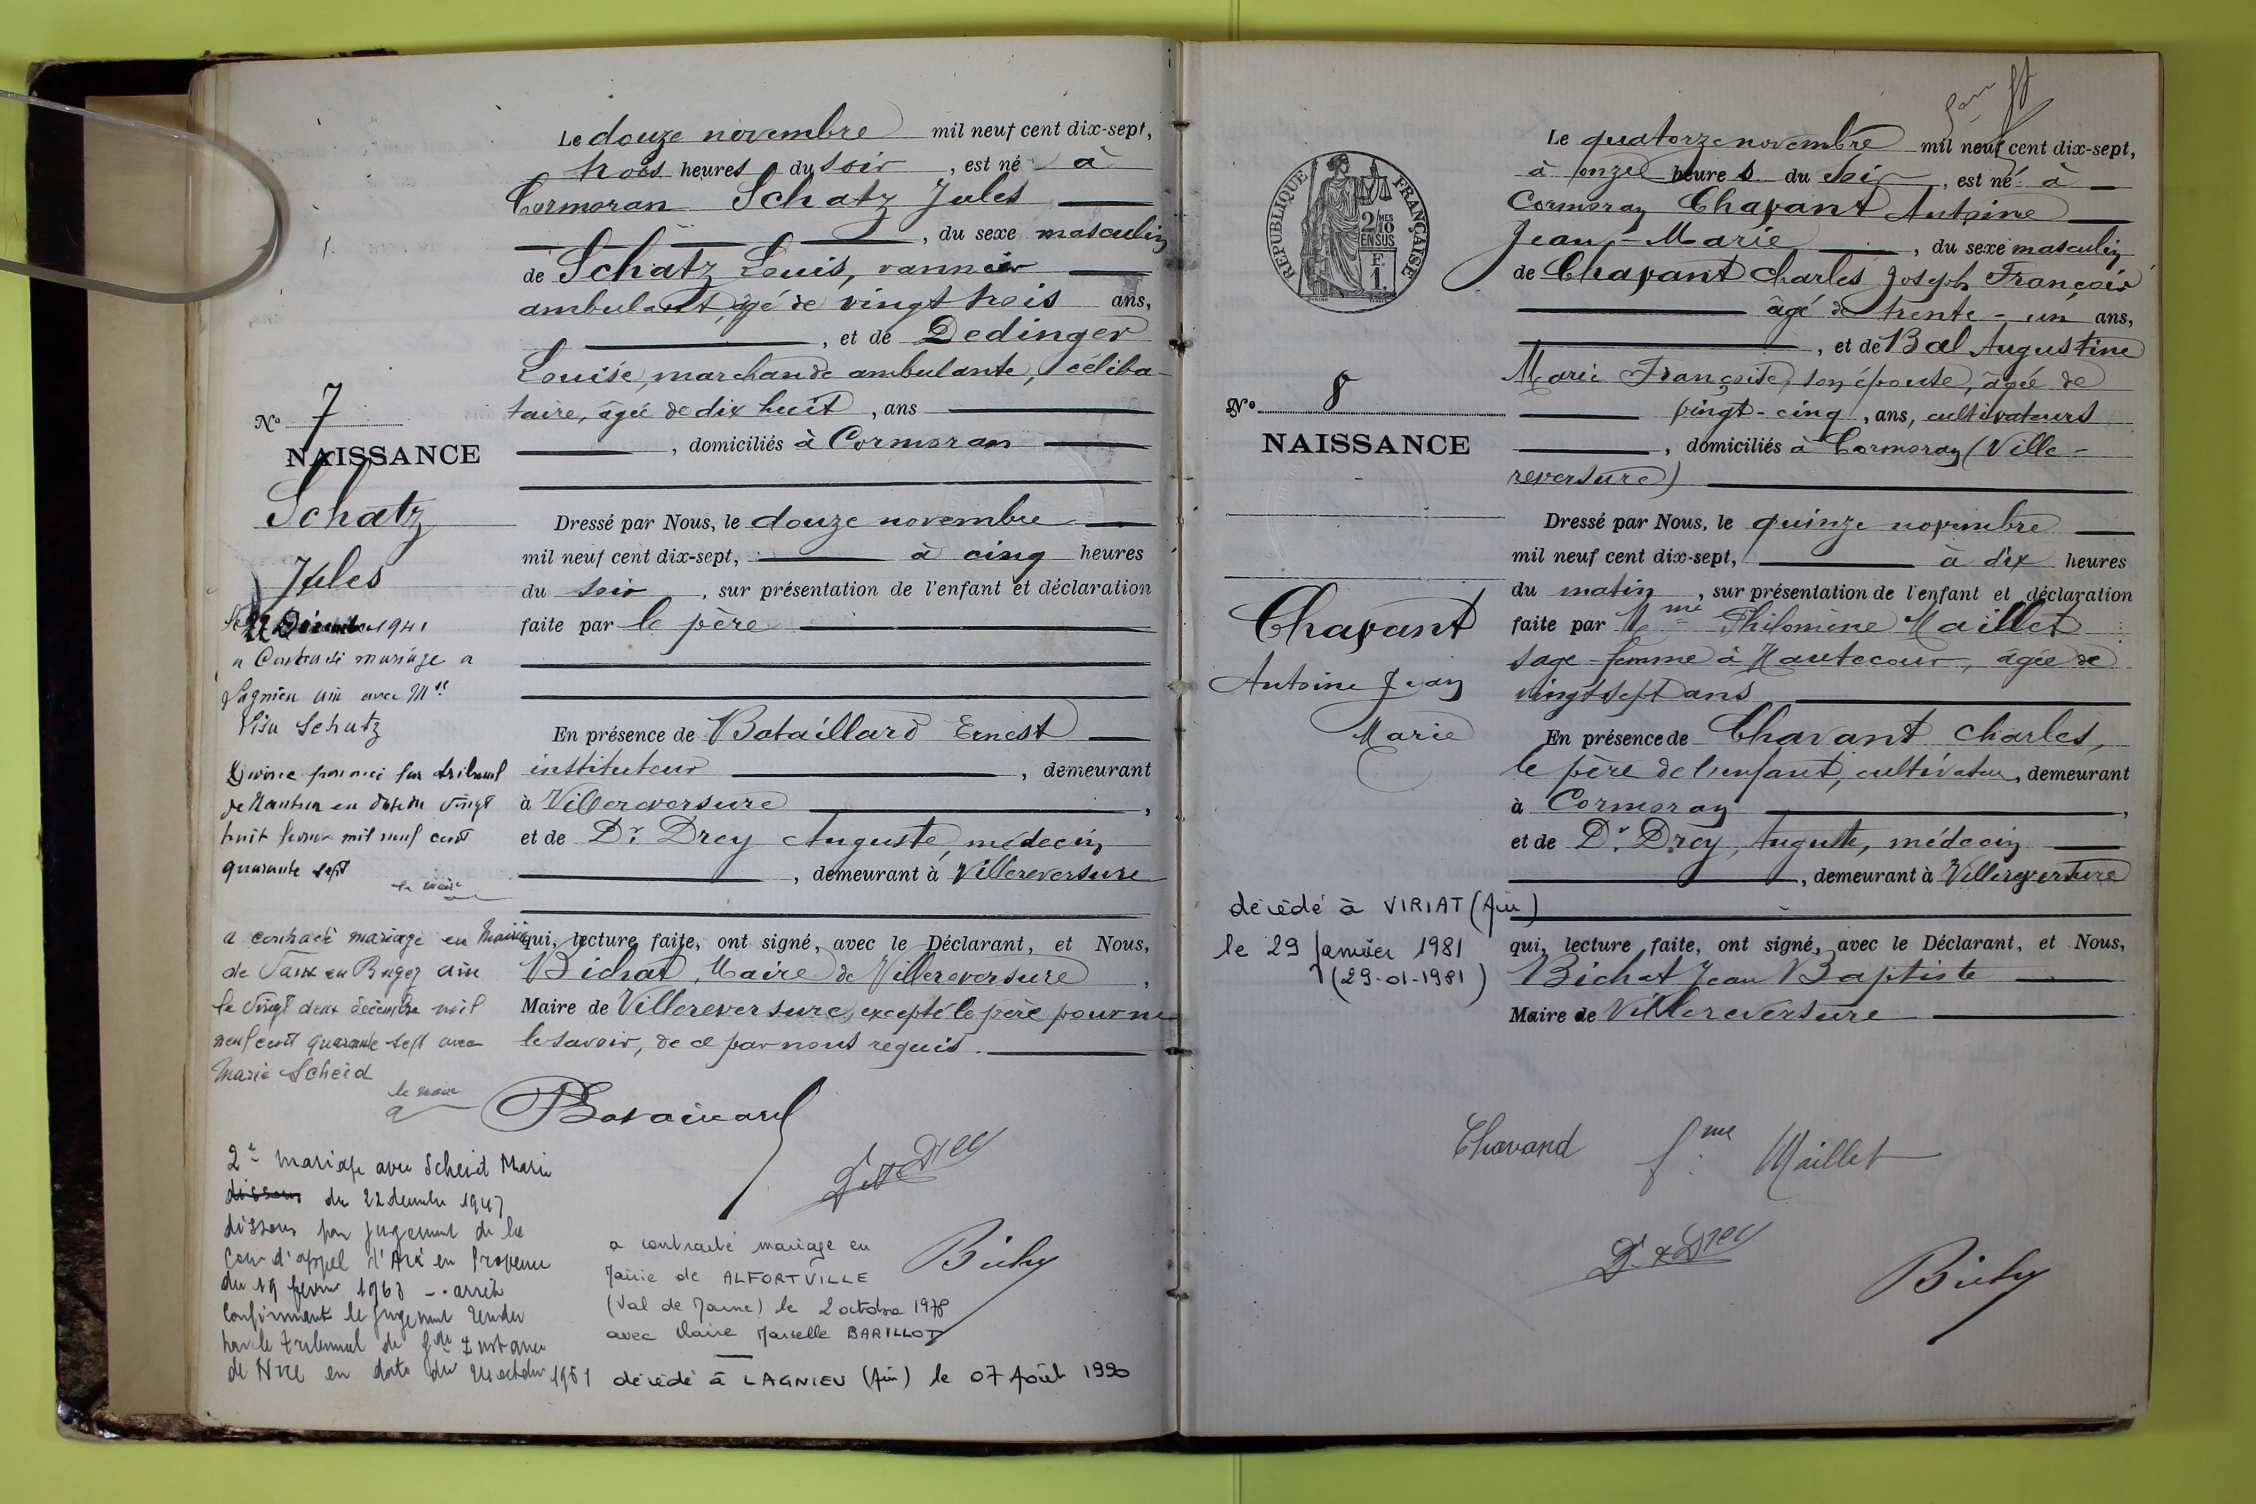 Le douze novembre mil neuf cent dix-sept,
trois heures du soir, est né à
Cormoran Schatz Jules
, du sexe masculin
de Schatz Louis, vannier
ambulant, âgé de vingt trois ans,
, et de Dedinger
Louise, marchande ambulante, céliba-
taire, âgée de dix huit, ans
, domiciliés à Cormoran
No 7
NAISSANCE
Schatz
Jules
Dressé par Nous, le douze novembre
mil neuf cent dix-sept, à cinq heures
du soir, sur présentation de l'enfant et déclaration
faite par le père
En présence de Bataillard Ernest
instituteur, demeurant
à Villereversure,
et de Dr. Drey Auguste, médecin
, demeurant à Villereversure
qui, lecture faite, ont signé, avec le Déclarant, et Nous,
Bichat, Maire de Villereversure,
Maire de Villereversure, excepté le père pour ne
le savoir, de ce par nous requis.
Décembre 1941
a Contracté mariage a
Lagnieu ain avec Mlle
Lisa Schatz
Divorce prononcé par tribunal
de Nantua en date du vingt
huit fevrier mil neuf cent
quarante sept
le maire
a contracté mariage en Mairie
de Vaux en Bugey ain
le vingt deux décembre mil
neuf cent quarante sept avec
Marie Scheid
le maire
2e mariage avec Scheid Marie
dissous du 22 decembre 1947
dissous par jugement de la
Cour d'appel d'Aix en Provence
du 19 fevrier 1963 - arrêt
confirmant le jugement rendu
par le tribunal de gde Instance
de Nice en date du octobre 1961
a contracté mariage en
Mairie de ALFORTVILLE
(Val de Marne) le 2 octobre 1978
avec Claire Marcelle BARILLOT
décédé à LAGNIEU (Ain) le 07 Août 1990
RÉPUBLIQUE FRANÇAISE
2 MES 10
EN SUS
F.
1.
Le quatorze novembre mil neuf cent dix-sept,
à onze heures du soir, est né à
Cormoran Chavant Antoine
Jean-Marie, du sexe masculin
de Chavant Charles Joseph François
âgé de trente-un ans,
, et de Bal Augustine
Marie Françoise, son épouse, âgée de
vingt-cinq, ans, cultivateurs
, domiciliés à Cormoran (Ville-
reversure)
No 8
NAISSANCE
Chavant
Antoine Jean
Marie
Dressé par Nous, le quinze novembre
mil neuf cent dix-sept, à dix heures
du matin, sur présentation de l'enfant et déclaration
faite par Mme Philomène Maillet
sage-femme à Hautecour, âgée de
vingt sept ans
En présence de Chavant Charles,
le père de l'enfant, cultivateur, demeurant
à Cormoran,
et de Dr. Drey, Auguste, médecin
, demeurant à Villereversure
qui, lecture faite, ont signé, avec le Déclarant, et Nous,
Bichat Jean Baptiste
Maire de Villereversure
décédé à VIRIAT (Ain)
le 29 Janvier 1981
(29-01-1981)
Chavand fme Maillet